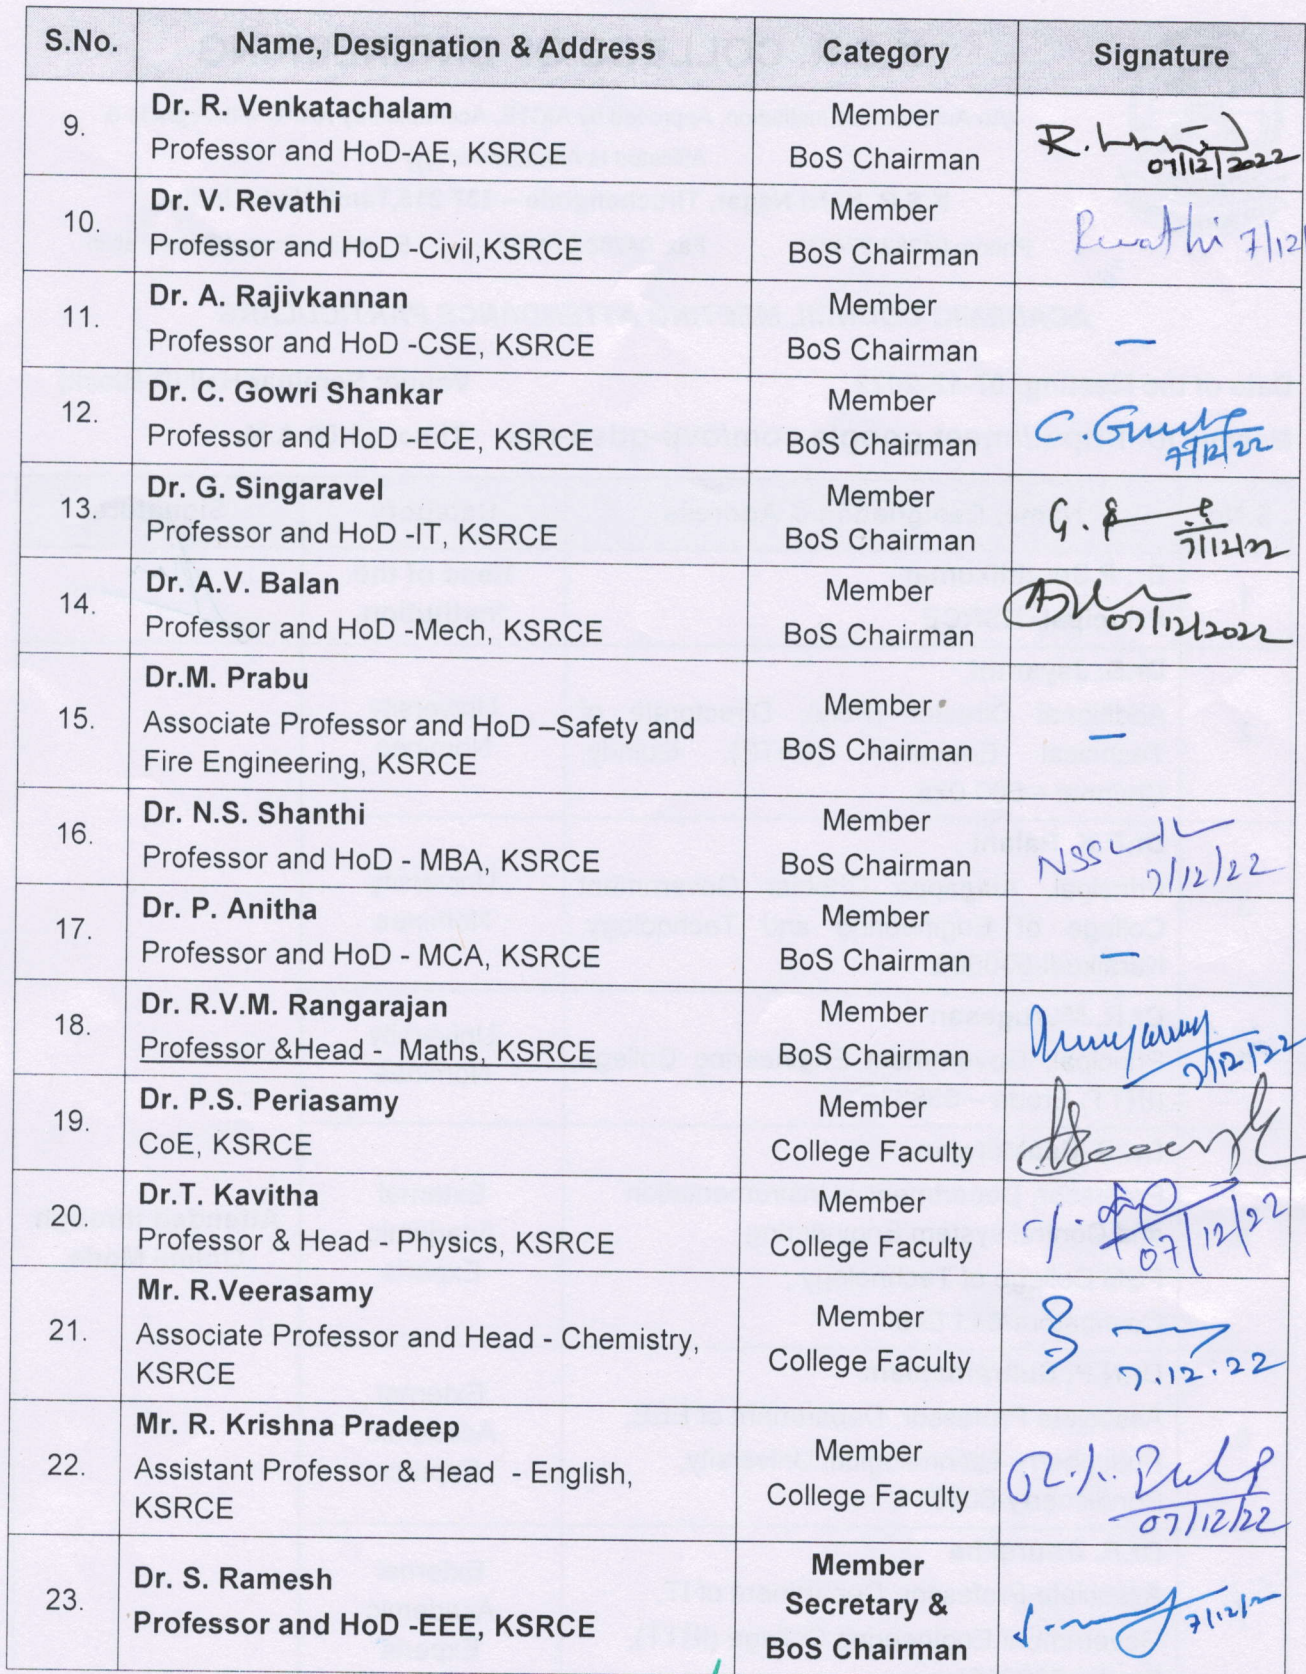 S.No. Name, Designation & Address Category Signature
9. Dr. R. Venkatachalam
Professor and HoD-AE, KSRCE
Member
BoS Chairman
R.
07/12/2022
10. Dr. V. Revathi
Professor and HoD -Civil,KSRCE
Member
BoS Chairman
Revathi 7/12/
11. Dr. A. Rajivkannan
Professor and HoD -CSE, KSRCE
Member
BoS Chairman
—
12. Dr. C. Gowri Shankar
Professor and HoD -ECE, KSRCE
Member
BoS Chairman
C.
7/12/22
13. Dr. G. Singaravel
Professor and HoD -IT, KSRCE
Member
BoS Chairman
G.
7/12/22
14. Dr.A.V. Balan
Professor and HoD -Mech, KSRCE
Member
BoS Chairman
07/12/2022
15. Dr.M. Prabu
Associate Professor and HoD –Safety and
Fire Engineering, KSRCE
Member
BoS Chairman
—
16. Dr. N.S. Shanthi
Professor and HoD - MBA, KSRCE
Member
BoS Chairman
7/12/22
17. Dr. P. Anitha
Professor and HoD - MCA, KSRCE
Member
BoS Chairman
—
18. Dr. R.V.M. Rangarajan
Professor &Head - Maths, KSRCE
Member
BoS Chairman
7/12/22
19. Dr. P.S. Periasamy
CoE, KSRCE
Member
College Faculty
20. Dr.T. Kavitha
Professor & Head - Physics, KSRCE
Member
College Faculty
07/12/22
21. Mr. R.Veerasamy
Associate Professor and Head - Chemistry,
KSRCE
Member
College Faculty
7.12.22
22. Mr. R. Krishna Pradeep
Assistant Professor & Head - English,
KSRCE
Member
College Faculty
07/12/22
23. Dr. S. Ramesh
Professor and HoD -EEE, KSRCE
Member
Secretary &
BoS Chairman
7/12/2